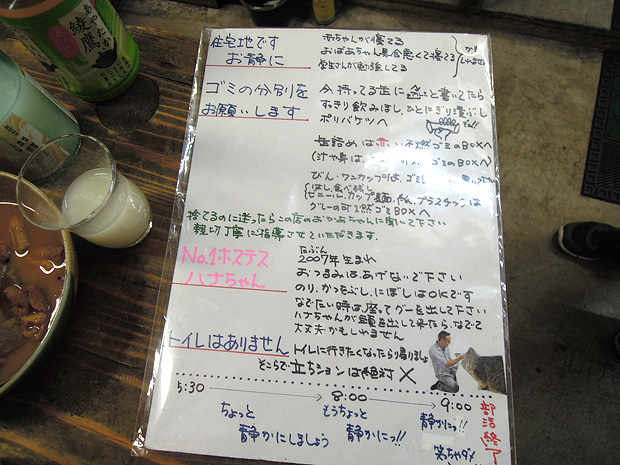 あやたか
綾鷹
住宅地です
お静に
赤ちゃんが寝てる
おばあちゃん具合悪くて寝てる
学生さんが勉強してる
ゴミの分別を
お願いします
今、持ってる缶に
と書いてたら
すきり飲みほし、ひとにぎり潰ぶし
ポリバケツへ
缶詰めは赤い不燃ゴミのBOXへ
(汁や身は
ゴミのBOXへ)
びん・ワンカップは、
はし、食べ残し
ビニール、カップ麺
プラスチックは
グレーの可燃ゴミBOXへ
捨てるのに迷ったらこの店のおかあちゃんに聞いて下さい
親切丁寧に指導させていただきます.
No.1ホステス
ハナちゃん
たぶん
2007年生まれ
おつまみはあげないで下さい
のり、かつおぶし、にぼしはOKです
なでたい時は、座ってグーを出して下さい
ハナちゃんが顔を出して来たら、なでて
大丈夫かもしれません
トイレはありません
トイレに行きたくなったら帰りましょ
そこらで立ちションは絶対×
5:30
8:00
9:00
ちょっと
静かにしましょう
もうちょっと
静かにっ!!
静かにっ!!
部活終了